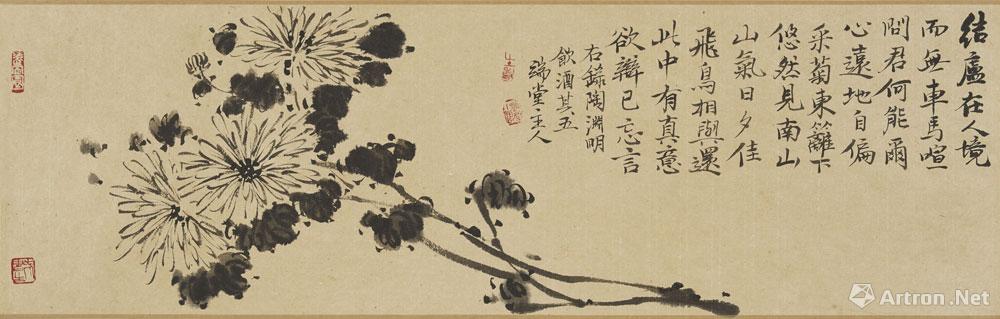 结廬在人境
而無車馬喧
問君何能爾
心遠地自偏
采菊東籬下
悠然見南山
山氣日夕佳
飛鳥相與還
此中有真意
欲辯已忘言
右錄陶淵明
飲酒其五
瑞堂主人
Artron.Net